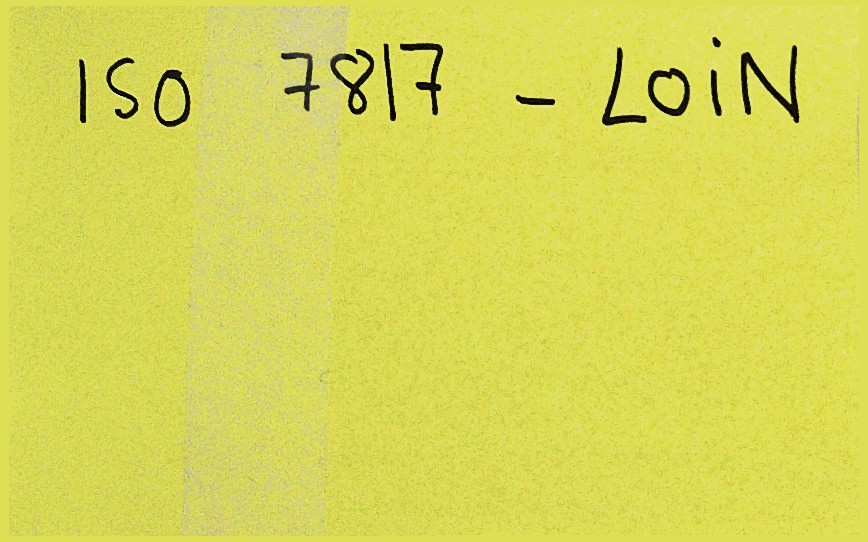 ISO 7817 - LOiN